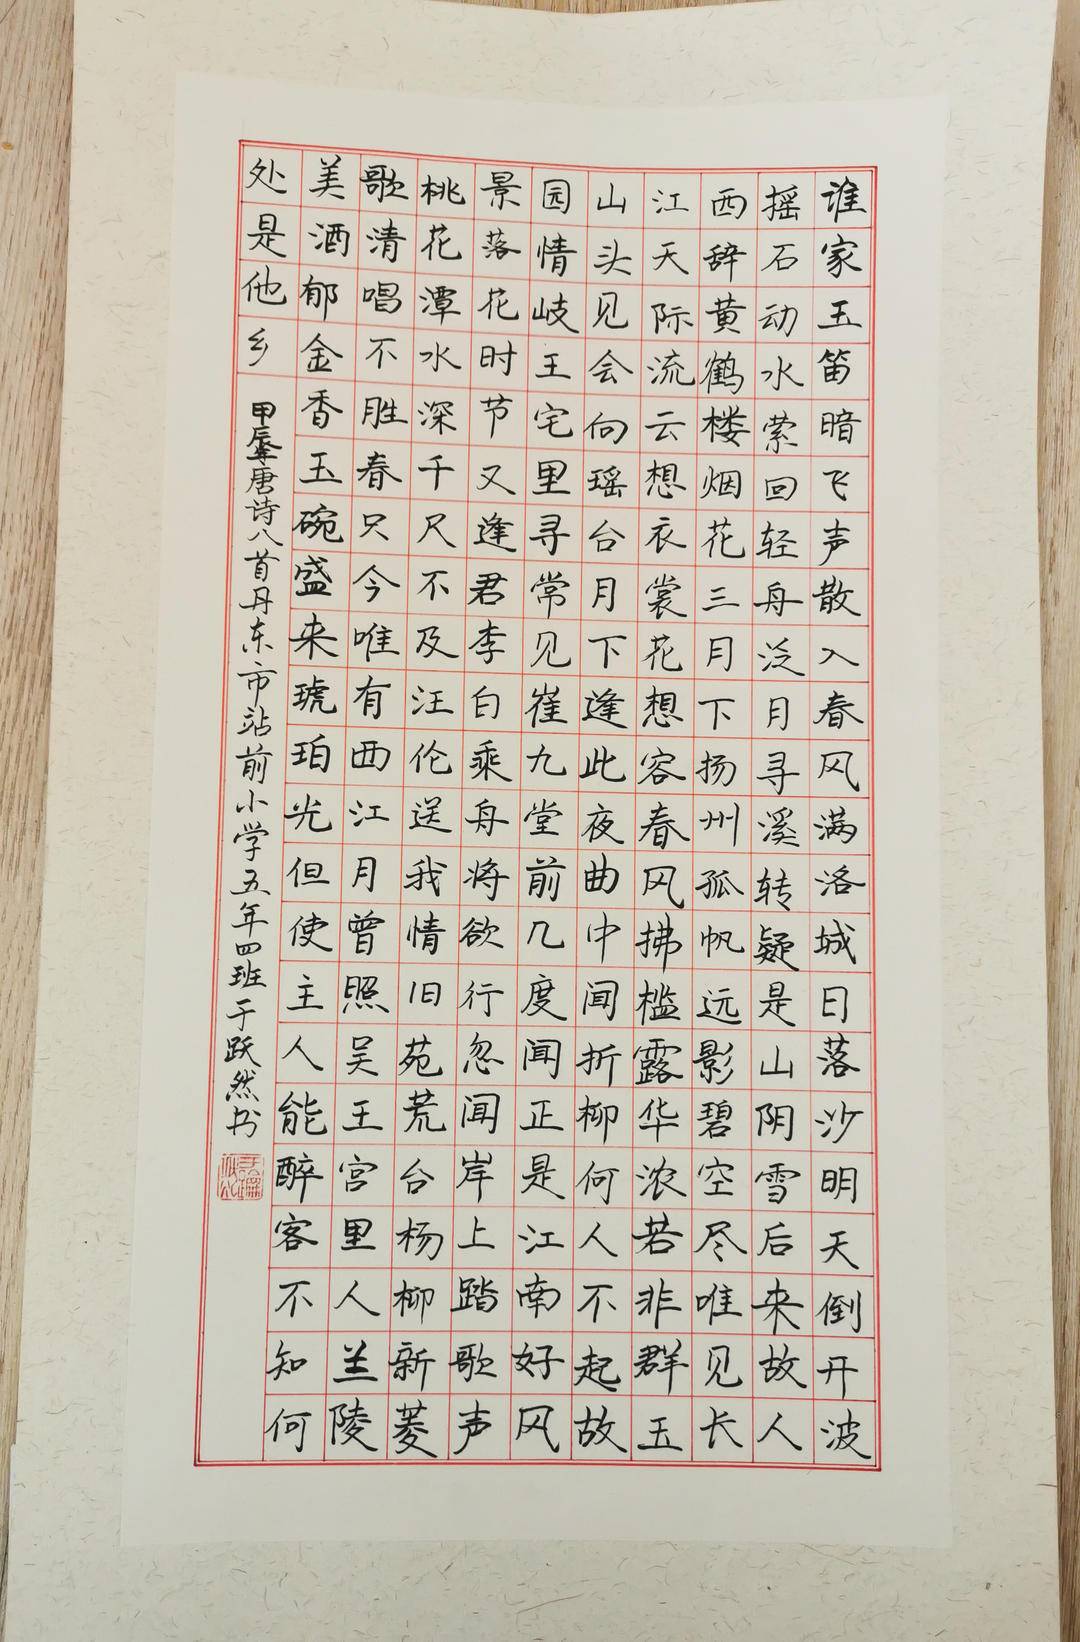 谁家玉笛暗飞声散入春风满洛城日落沙明天倒开波
摇石动水萦回轻舟泛月寻溪转疑是山阴雪后来故人
西辞黄鹤楼烟花三月下扬州孤帆远影碧空尽唯见长
江天际流云想衣裳花想容春风拂槛露华浓若非群玉
山头见会向瑶台月下逢此夜曲中闻折柳何人不起故
园情岐王宅里寻常见崔九堂前几度闻正是江南好风
景落花时节又逢君李白乘舟将欲行忽闻岸上踏歌声
桃花潭水深千尺不及汪伦送我情旧苑荒台杨柳新菱
歌清唱不胜春只今唯有西江月曾照吴王宫里人兰陵
美酒郁金香玉碗盛来琥珀光但使主人能醉客不知何
处是他乡
甲辰年唐诗八首丹东市站前小学五年四班于跃然书